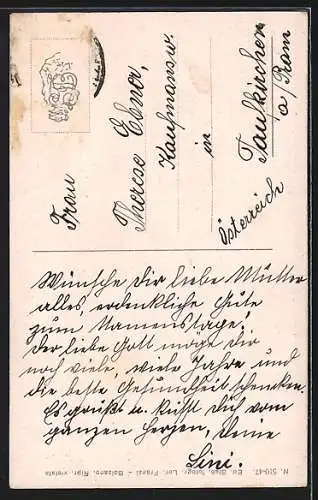 Frau
Therese Ebner,
Kaufmannsw.
in
Taufkirchen
a/Pram
Österreich
Wünsche dir liebe Mutter
alles, erdenkliche Gute
zum Namenstage!
Der liebe Gott möge dir
noch viele, viele Jahre und
die beste Gesundheit schencken.
Es grüßt u. küßt dich vom
ganzen Herzen, deine
Lini.
N. 510-47. Ed. Stab. fotogr. Lor. Fränzl - Bolzano, Ripr. vietata